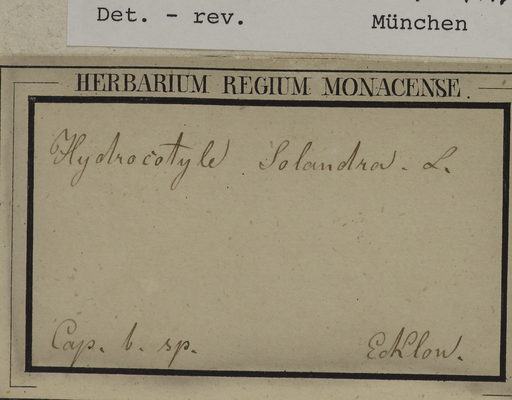 Det. - rev.
München
HERBARIUM REGIUM MONACENSE.
Hydrocotyle Solandra. L.
Cap. b. sp.
Ecklon.